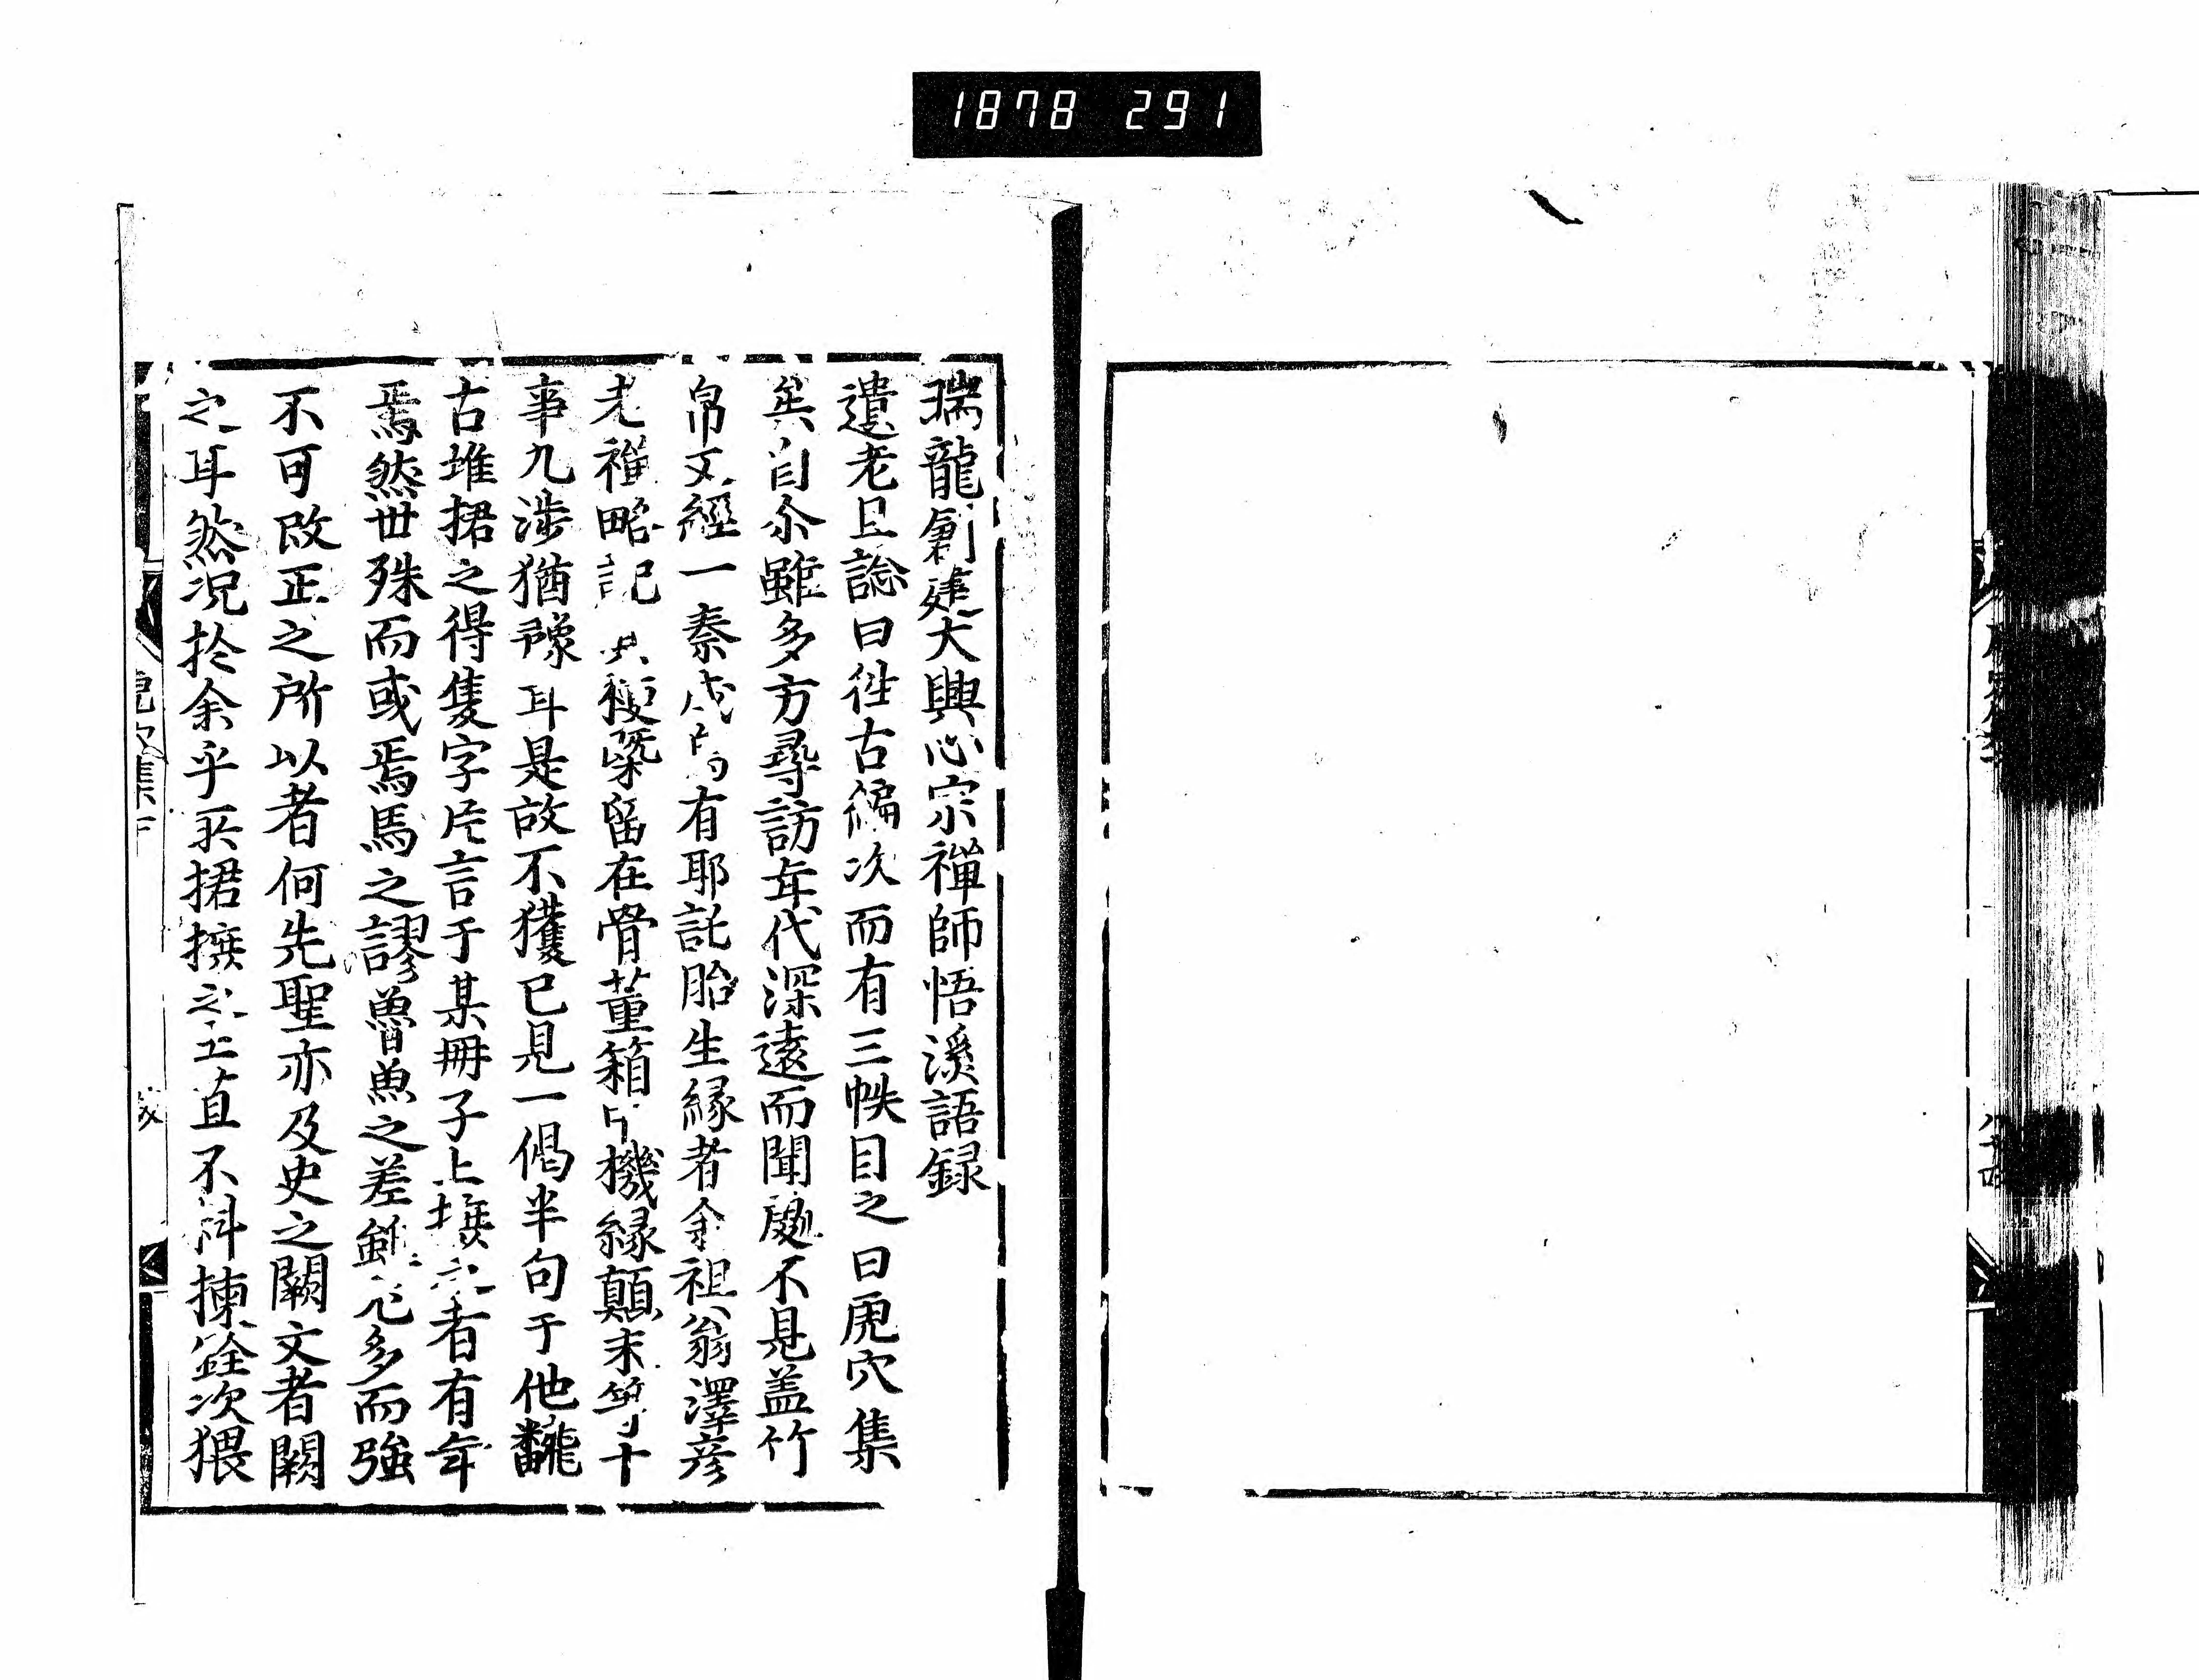 1878 291
瑞龍創建大興心宗禪師悟溪語録
遺老且諗曰徃古編次而有三帙目之曰虎穴集
矣自余雖多方尋訪年代深遠而聞處不見蓋竹
帛文經一秦 有耶託胎生縁者余祖翁澤彦
老禪略記 梗槩留在骨董箱 機縁顛末等十
事九渉猶豫耳是故不獲已見一偈半句于他飜
古堆捃之得隻字片言于某冊子上摭之者有年
焉然世殊而或焉馬之謬魯魚之差 多而強
不可改正之所以者何先聖亦及史之闕文者闕
之耳然况於余乎 捃摭之 直不 揀詮次猥
集下
跋